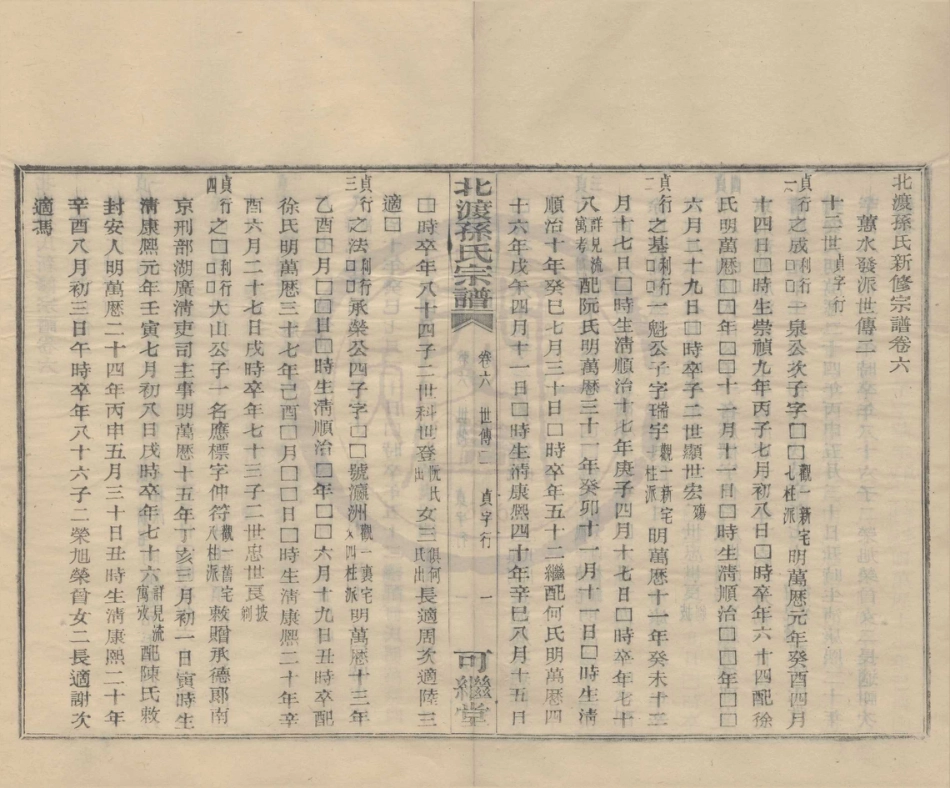 北渡孫氏新修宗譜卷六
蕙水發派世傳二
十二世貞字行
貞行一之成□□利行一泉公次子字□□觀一新宅七柱派明萬曆元年癸酉四月
十四日□時生崇禎九年丙子七月初八日□時卒年六十四配徐
氏明萬曆□□年□□十一月十一日□□時生清順治□□年□□
六月二十九日□時卒子二世顯世宏殤
貞行二之基□□利行一魁公子字瑞宇觀一新宅十柱派明萬曆十一年癸未十二
月十七日□時生清順治十七年庚子四月十七日□時卒年七十
八詳見流寓考配阮氏明萬曆三十一年癸卯十一月十一日□時生清
順治十年癸巳七月三十日□時卒年五十二繼配何氏明萬曆四
十六年戊午四月十一日□時生清康熙四十年辛巳八月十五日
北渡孫氏宗譜 卷六 世傳二 貞字行 一 可繼堂
□時卒年八十四子二世科世登阮氏出女三俱何氏出長適周次適陸三
適□
貞行三之法□□利行承榮公四子字□□號瀛洲觀一裏宅四柱派明萬曆十三年
乙酉□月□□日□時生清順治□□年□□六月十九日丑時卒配
徐氏明萬曆三十七年己酉□月□□日□時生清康熙二十年辛
酉六月二十七日戌時卒年七十三子二世忠世良披剃
貞行四之□□□利行大山公子一名應標字仲符觀一舊宅八柱派敕贈承德郎南
京刑部湖廣清吏司主事明萬曆十五年丁亥三月初一日寅時生
清康熙元年壬寅七月初八日戌時卒年七十六詳見流寓考配陳氏敕
封安人明萬曆二十四年丙申五月三十日丑時生清康熙二十年
辛酉八月初三日午時卒年八十六子二榮旭榮首女二長適謝次
適馮